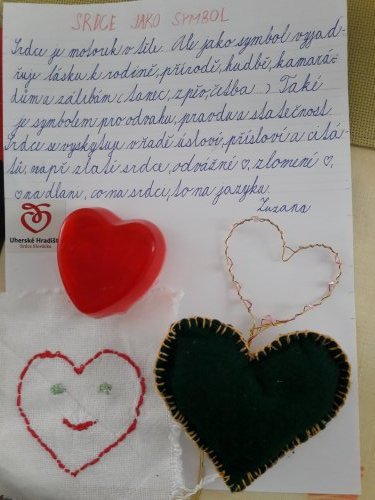 SRDCE JAKO SYMBOL
Srdce je motorek v těle. Ale jako symbol vyjad-
řuje lásku k rodině, přírodě, hudbě, kamará-
dům a zálibám (tanec, zpěv, četba...) Také
je symbolem pro odvahu, pravdu a statečnost.
Srdce se vyskytuje v řadě úsloví, přísloví a citá-
tů, např. zlaté srdce, odvážné ♡, zlomené ♡,
♡ na dlani, co na srdci, to na jazyku.
Zuzana
Uherské Hradiště
Srdce Slovácka